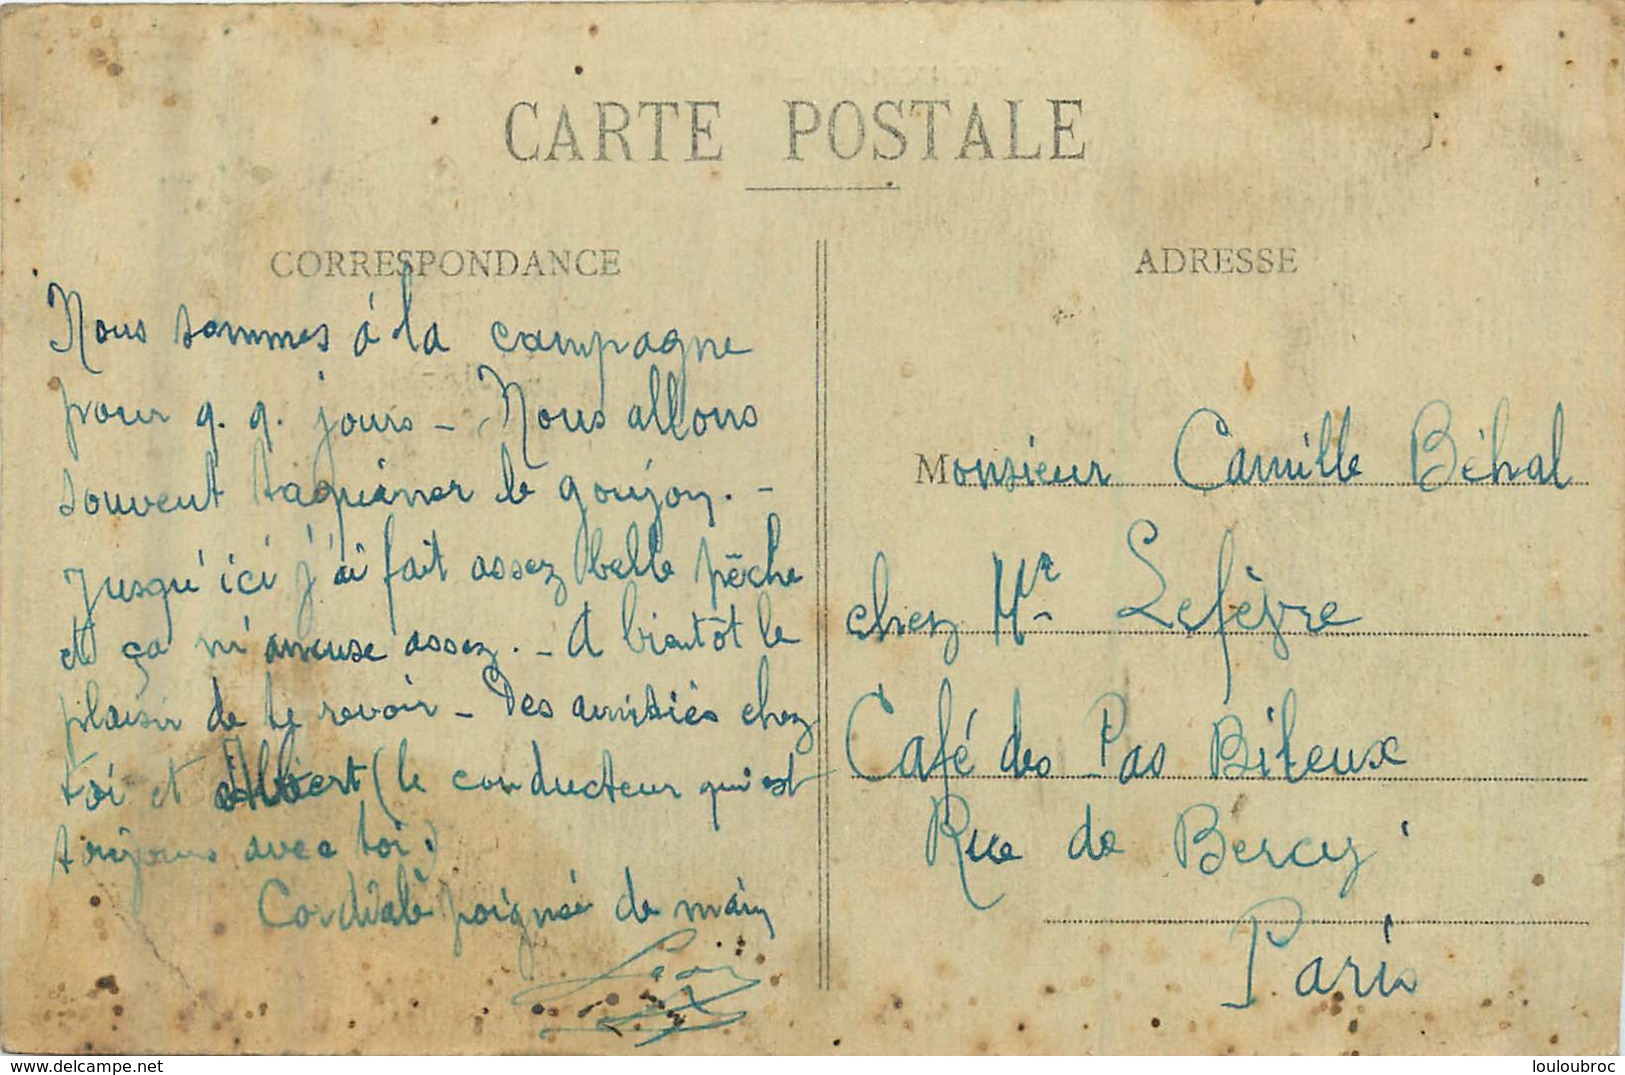 CARTE POSTALE
CORRESPONDANCE
Nous sommes à la campagne
pour q. q. jours - Nous allons
souvent taquiner le goujon. -
Jusqu'ici j'ai fait assez belle pêche
et ça m'amuse assez. - A bientôt le
plaisir de te revoir - Des amitiés chez
toi et Albert (le conducteur qui est
toujours avec toi.)
Cordiale poignée de main
Léon
ADRESSE
Monsieur Camille Béhal
chez Mr Lefèvre
Café des Pas Bileux
Rue de Bercy
Paris
https://www.delcampe.net
louloubroc